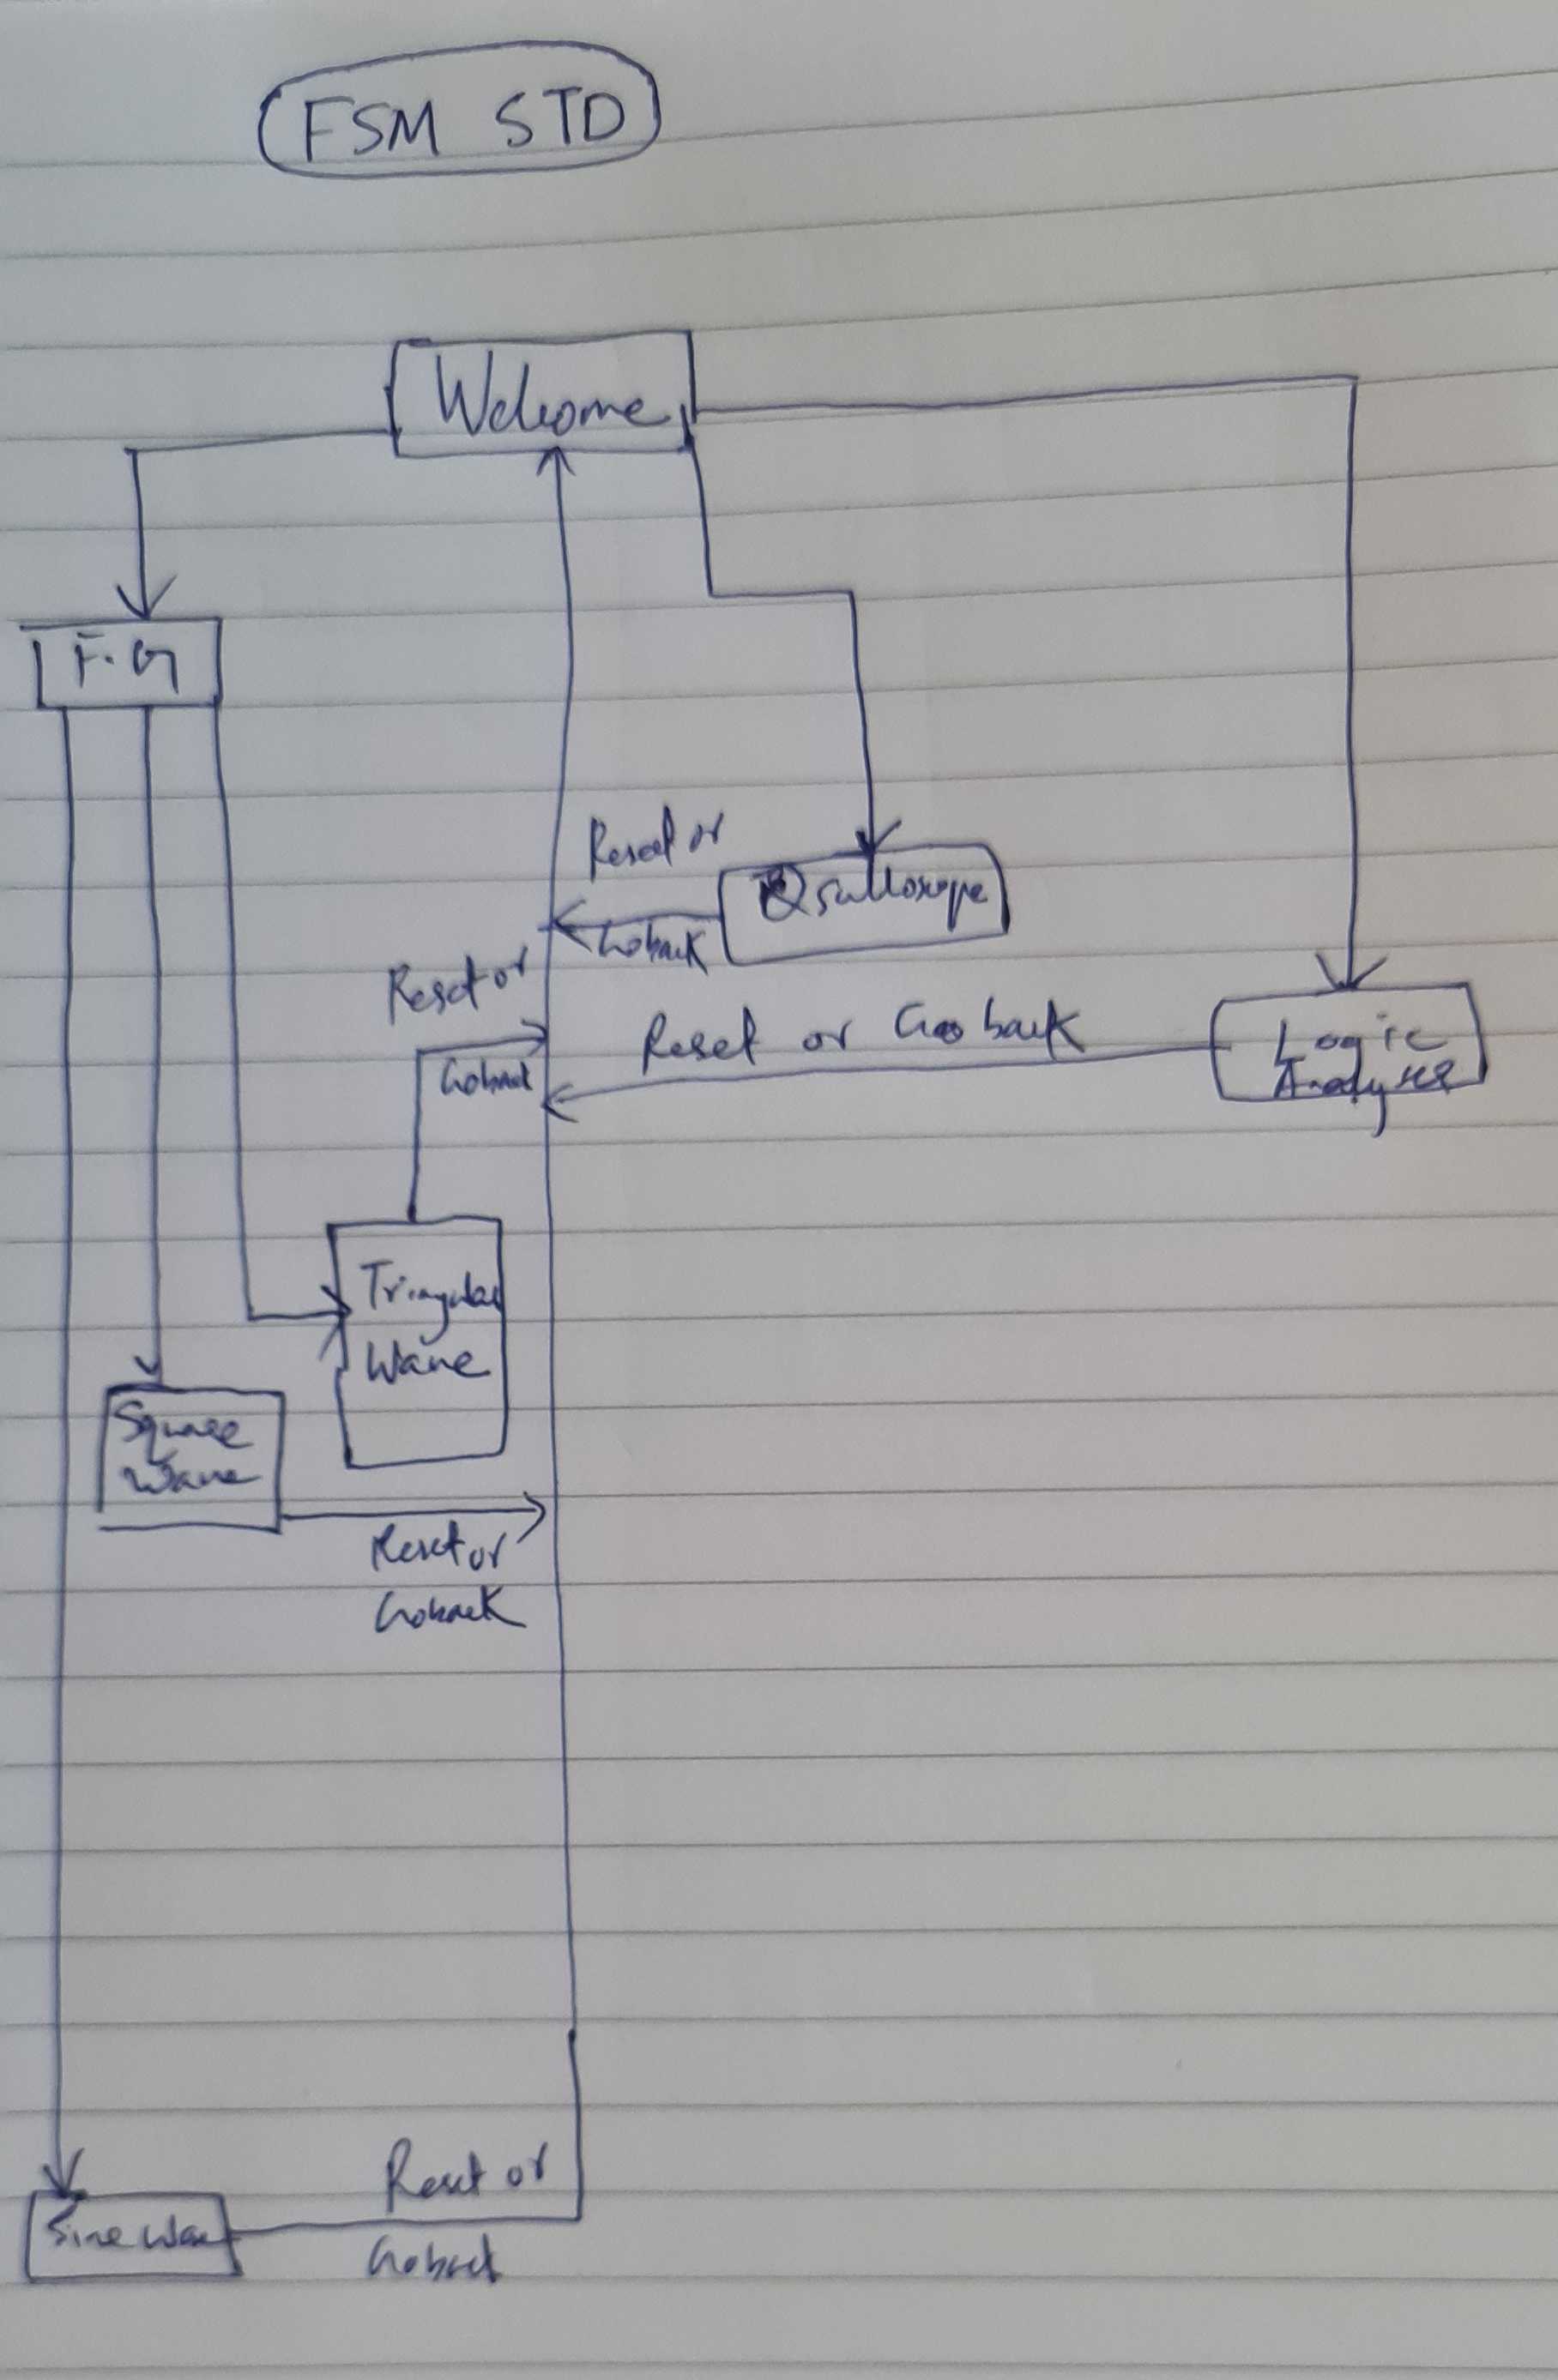 FSM STD
Welcome
F.G
Reset or
Goback
Oscilloscope
Reset or
Goback
Reset or Goo back
Logic
Analyser
Triangular
Wave
Square
Wave
Reset or
Goback
Reset or
Goback
Sine Wave